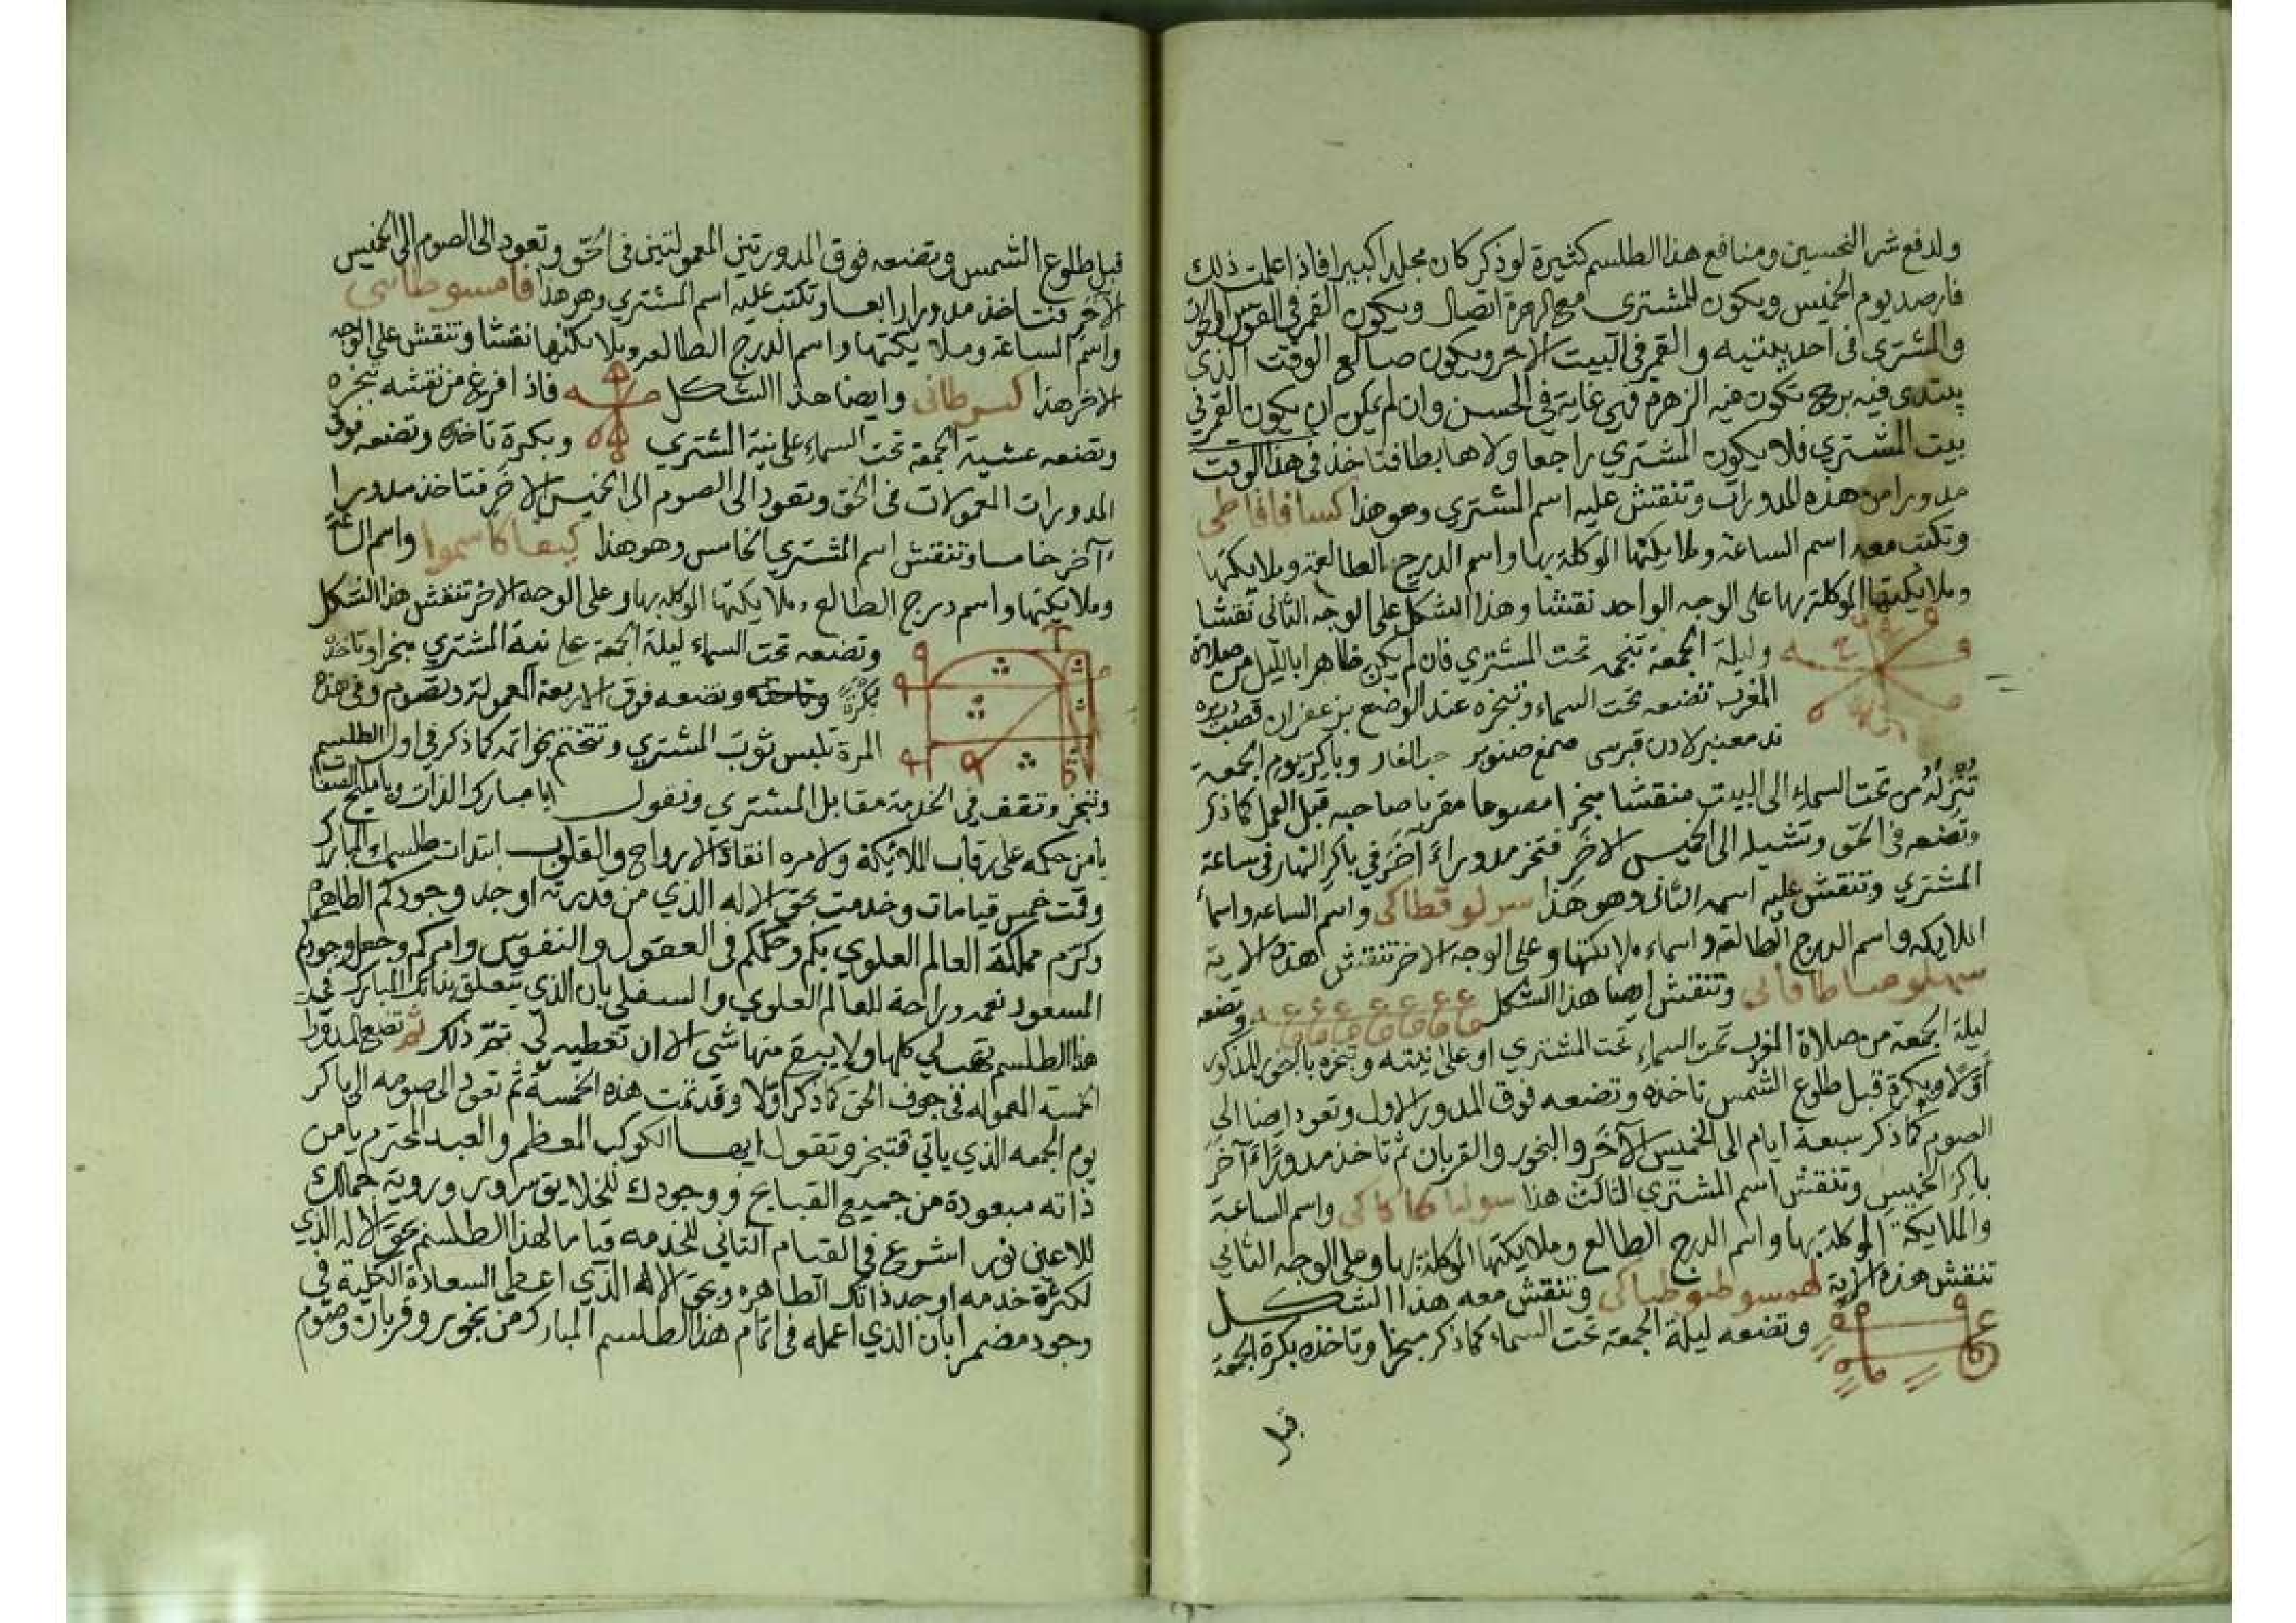 ولدفع شر النحسين ومنافع هذا الطلسم كثيرة لو ذكر كان مجلدا كبيرا فاذا علمت ذلك
فارصد يوم الخميس ويكون للمشتري مع الزهرة اتصال ويكون القمر في القوس او الحوت
والمشتري في احد بيتيه والقمر في البيت الاخر ويكون صالع الوقت الذي
يبتدي فيه برج تكون فيه الزهرة فهي غاية في الحسن وان لم يمكن ان يكون القمر في
بيت المشتري فلا يكون المشتري راجعا ولا هابطا فتاخذ في هذا الوقت
مدورا من هذه المدورات وتنقش عليه اسم المشتري وهو هذا كسافافاطي
وتكتب معه اسم الساعة وملايكتها الموكلة بها واسم الدرج الطالعة وملايكتها
وملايكتها الموكلة بها على الوجه الواحد نقشا وهذا الشكل على الوجه الثاني نقشا
وليلة الجمعة تنجمه تحت المشتري فان لم يكن ظاهرا بالليل من صلاة
المغرب تضعه تحت السماء وتبخره عند الوضع بزعفران قصب ذريره
ند معنبر لادن قبرسى صمغ صنوبر حب الغار وباكر يوم الجمعة
تنزله من تحت السماء الى البيت منقشا مبخرا مصوما مقربا صاحبه قبل العمل كما ذكر
وتضعه في الحق وتشيله الى الخميس الاخر فتخر مدوراء اخر في باكر النهار في ساعة
المشتري وتنقش عليه اسمه الثاني وهو هذا سرلوقطاكي واسم الساعه واسما
الملايكه واسم الدرج الطالعة واسماء ملايكتها وعلى الوجه الاخر تنقش هذه الاية
سهلوصاطافاني وتنقش ايضا هذا الشكل وتضعه
ليلة الجمعة من صلاة المغرب تحت السماء تحت المشتري او على نيته وتبخره بالبخور المذكور
اولا وبكرة قبل طلوع الشمس تاخذه وتضعه فوق المدور الاول وتعود ايضا الى
الصوم كما ذكر سبعة ايام الى الخميس الآخر والبخور والقربان ثم تاخذ مدوراء آخر
باكر الخميس وتنقش اسم المشتري الثالث هذا سولياكاكاكي واسم الساعة
والملايكة الموكلة بها واسم الدرج الطالع وملايكتها الموكلة بها وعلى الوجه الثاني
تنقش هذه الاية لهمسوطوطياكي وتنقش معه هذا الشكل
وتضعه ليلة الجمعة تحت السماء كما ذكر مبخرا وتاخذه بكرة الجمعة
قبل
قبل طلوع الشمس وتضعه فوق المدورتين المعمولتين في الحق وتعود الى الصوم الى الخميس
الآخر فتاخذ مدورا رابعا وتكتب عليه اسم المشتري وهو هذا فامسوطاسى
واسم الساعة وملايكتها واسم الدرج الطالعه وملايكتها نقشا وتنقش على الوجه
الاخر هذا كسرطانى وايضا هذا الشكل فاذا فرغ من نقشه تبخره
وتضعه عشية الجمعة تحت السماء على نية المشتري وبكرة تاخذه وتضعه فوق
المدورات المعمولات في الحق وتعود الى الصوم الى الخميس الاخر فتاخذ مدورا
آخر خامسا وتنقش اسم المشتري الخامس وهو هذا كيعاكاسموا واسم
وملايكتها واسم درج الطالع وملايكتها الموكله بها وعلى الوجه الاخر تنقش هذا الشكل
وتضعه تحت السماء ليلة الجمعة على نية المشتري مبخرا وتاخذه
بكرة وتاخذه وتضعه فوق الاربعة المعمولة وتصوم وفي هذه
المرة تلبس ثوب المشتري وتتختم بخواتمه كما ذكر في اول الطلسم
وتبخر وتقف في الخدمة مقابل المشتري وتقول ايا مبارك الذات ويا مليح الصفات
يا من حكمه على رقاب الملائكة ولامره انقادة الارواح والقلوب ابتدات طلسمك المبارك
وقت خمس قيامات وخدمت بحق الاله الذي من قدرته اوجد وجودكم الطاهر
وكرم مملكة العالم العلوي بكم وحكمكم في العقول والنفوس وامركم وجعل وجودكم
المسعود نعمه وراحة للعالم العلوي والسفلي بان الذي يتعلق بذاتك المبارك في
هذا الطلسم تهب لي كلها ولا يبقى منها شي الا ان تعطيه لي تم ذلك ثم تضع المدورات
الخمسة المعموله في جوف الحق كما ذكر اولا وقد تمت هذه الخمسة ثم تعود الى صومه الى باكر
يوم الجمعه الذي ياتي فتبخر وتقول ايها الكوكب المعظم والعبد المحترم يا من
ذاته مبعودة من جميع القبايح ووجودك للخلايق سرور وروية جمالك
للاعين نور اشرع في القيام الثاني للخدمه قياما لهذا الطلسم بحق الاله الذي
لكثرة خدمه اوجد ذاتك الطاهره وبحق الاله الذي اعطى السعادة الكلية في
وجود مضمر ابان الذي اعمله في اتمام هذا الطلسم المبارك من بخور وقربان وصوم